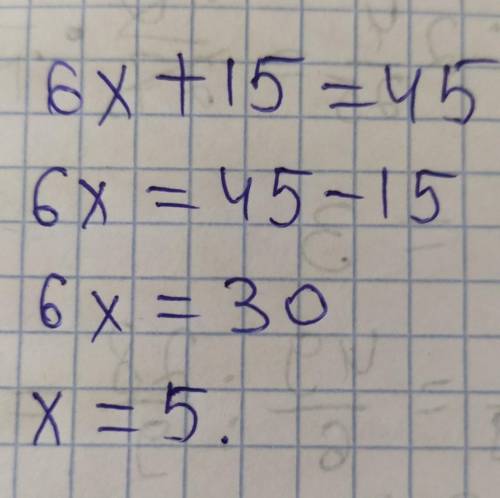 6x + 15 = 45
6x = 45 - 15
6x = 30
x = 5.